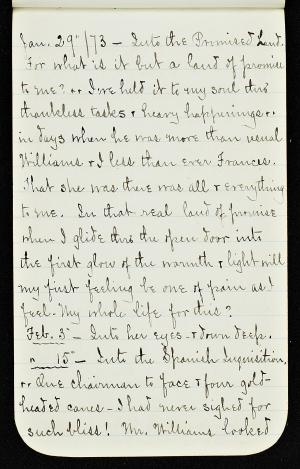 Jan. 29"/73 – Into the Promised Land.
For what is it but a land of promise
to me? .. I've held it to my soul thro
thankless tasks & heavy happenings ..
in days when he was more than usual
Williams & I less than ever Frances.
That she was there was all & everything
to me. In that real land of promise
when I glide thro the open door into
the first glow of the warmth & light will
my first feeling be one of pain as I
feel – My whole life for this?
Feb. 5" – Into her eyes – & down deep.
" 15" – Into the Spanish Inquisition,
.. One chairman to face & four gold-
headed canes – I had never sighed for
such bliss! Mr. Williams looked